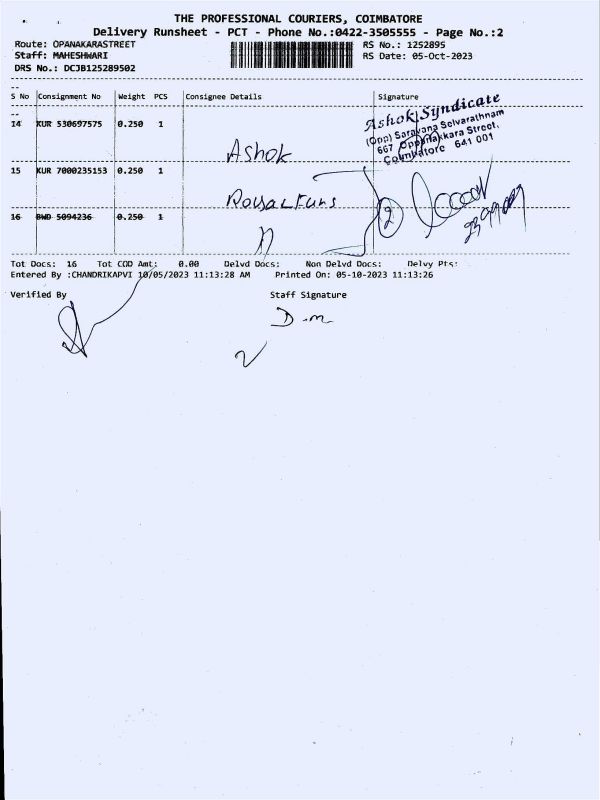 THE PROFESSIONAL COURIERS, COIMBATORE
Delivery Runsheet - PCT - Phone No.:0422-3505555 - Page No.:2
Route: OPANAKARASTREET
RS No.: 1252895
Staff: MAHESHWARI
RS Date: 05-Oct-2023
DRS No.: DCJB125289502
S No Consignment No Weight PCS Consignee Details Signature
14 KUR 530697575 0.250 1
Ashok
Ashok Syndicate
(Opp) Saravana Selvarathnam
667 Oppanakkara Street,
Coimbatore 641 001
15 KUR 7000235153 0.250 1
16 BWD 5094236 0.250 1
2
Tot Docs: 16 Tot COD Amt: 0.00 Delvd Docs: Non Delvd Docs: Delvy Pts:
Entered By :CHANDRIKAPVI 10/05/2023 11:13:28 AM Printed On: 05-10-2023 11:13:26
Verified By Staff Signature